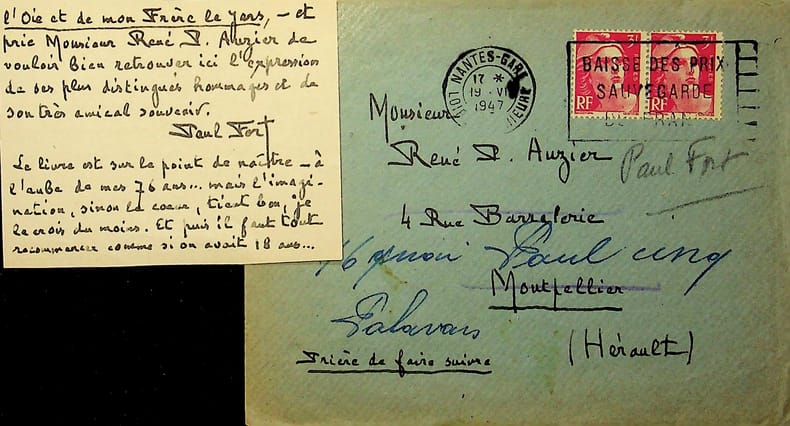 l'Oie et de mon Frère le jars, — et
prie Monsieur René P. Auzier de
vouloir bien retrouver ici l'expression
de ses plus distingués hommages et de
son très amical souvenir.
Paul Fort
Le livre est sur le point de naître — à
l'aube de mes 76 ans... mais l'imagi-
nation, sinon le coeur, tient bon, je
le crois du moins. Et puis il faut tout
recommencer comme si on avait 18 ans...
NANTES-GARE
17 *
19 · VI
1947
LOIRE INFÉRIEURE
BAISSE DES PRIX
SAUVEGARDE
DU FRANC
3F
3F
RF
RF
Monsieur
René P. Auzier
Paul Fort
4 Rue Barralerie
16 quai Paul cunq
Montpellier
Palavas
(Hérault)
Prière de faire suivre